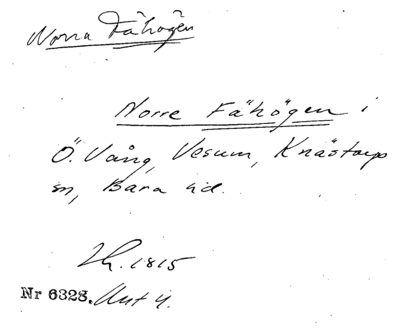 Norra Fåhögen
Norre Fähögen i
Ö. Vång, Vesum, Knästorps
sn, Bara hd.
Lh. 1815
Nr 6328. Aut 4.